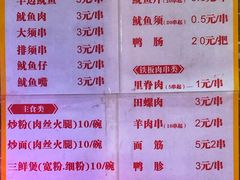 羊边鱿鱼 3元/串
鱿鱼肉 3元/串
大须串 3元/串
排须串 3元/串
鱿鱼仔 3元/串
鱿鱼嘴 3元/串
主食类
炒粉(肉丝火腿)10/碗
炒面(肉丝火腿)10/碗
三鲜煲(宽粉.细粉)10/碗
3元/串
鱿鱼须(20串起) 0.5元/串
鸭肠 20元/把
铁板肉串类
里脊肉(5串起) 1元/串
田螺肉 3元/串
羊肉串(2串起) 2元/串
面筋 5元2串
鸭胗 3元/串